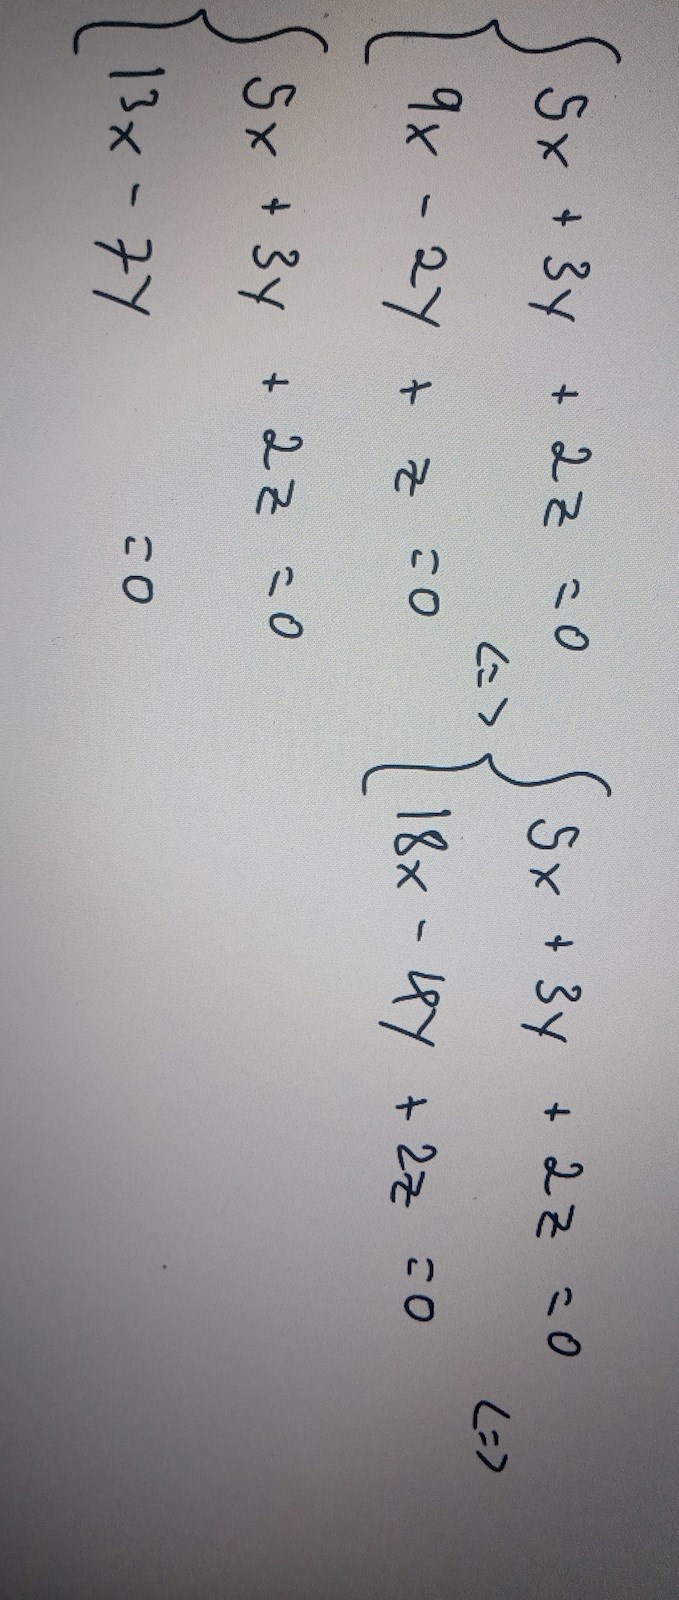 5x + 3y + 2z = 0
9x - 2y + z = 0
<=>
5x + 3y + 2z = 0
18x - 4y + 2z = 0
<=>
5x + 3y + 2z = 0
13x - 7y = 0